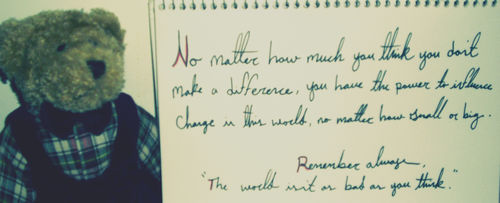 No matter how much you think you don't
make a difference, you have the power to influence
change in this world, no matter how small or big.
Remember always,
"The world isn't as bad as you think."